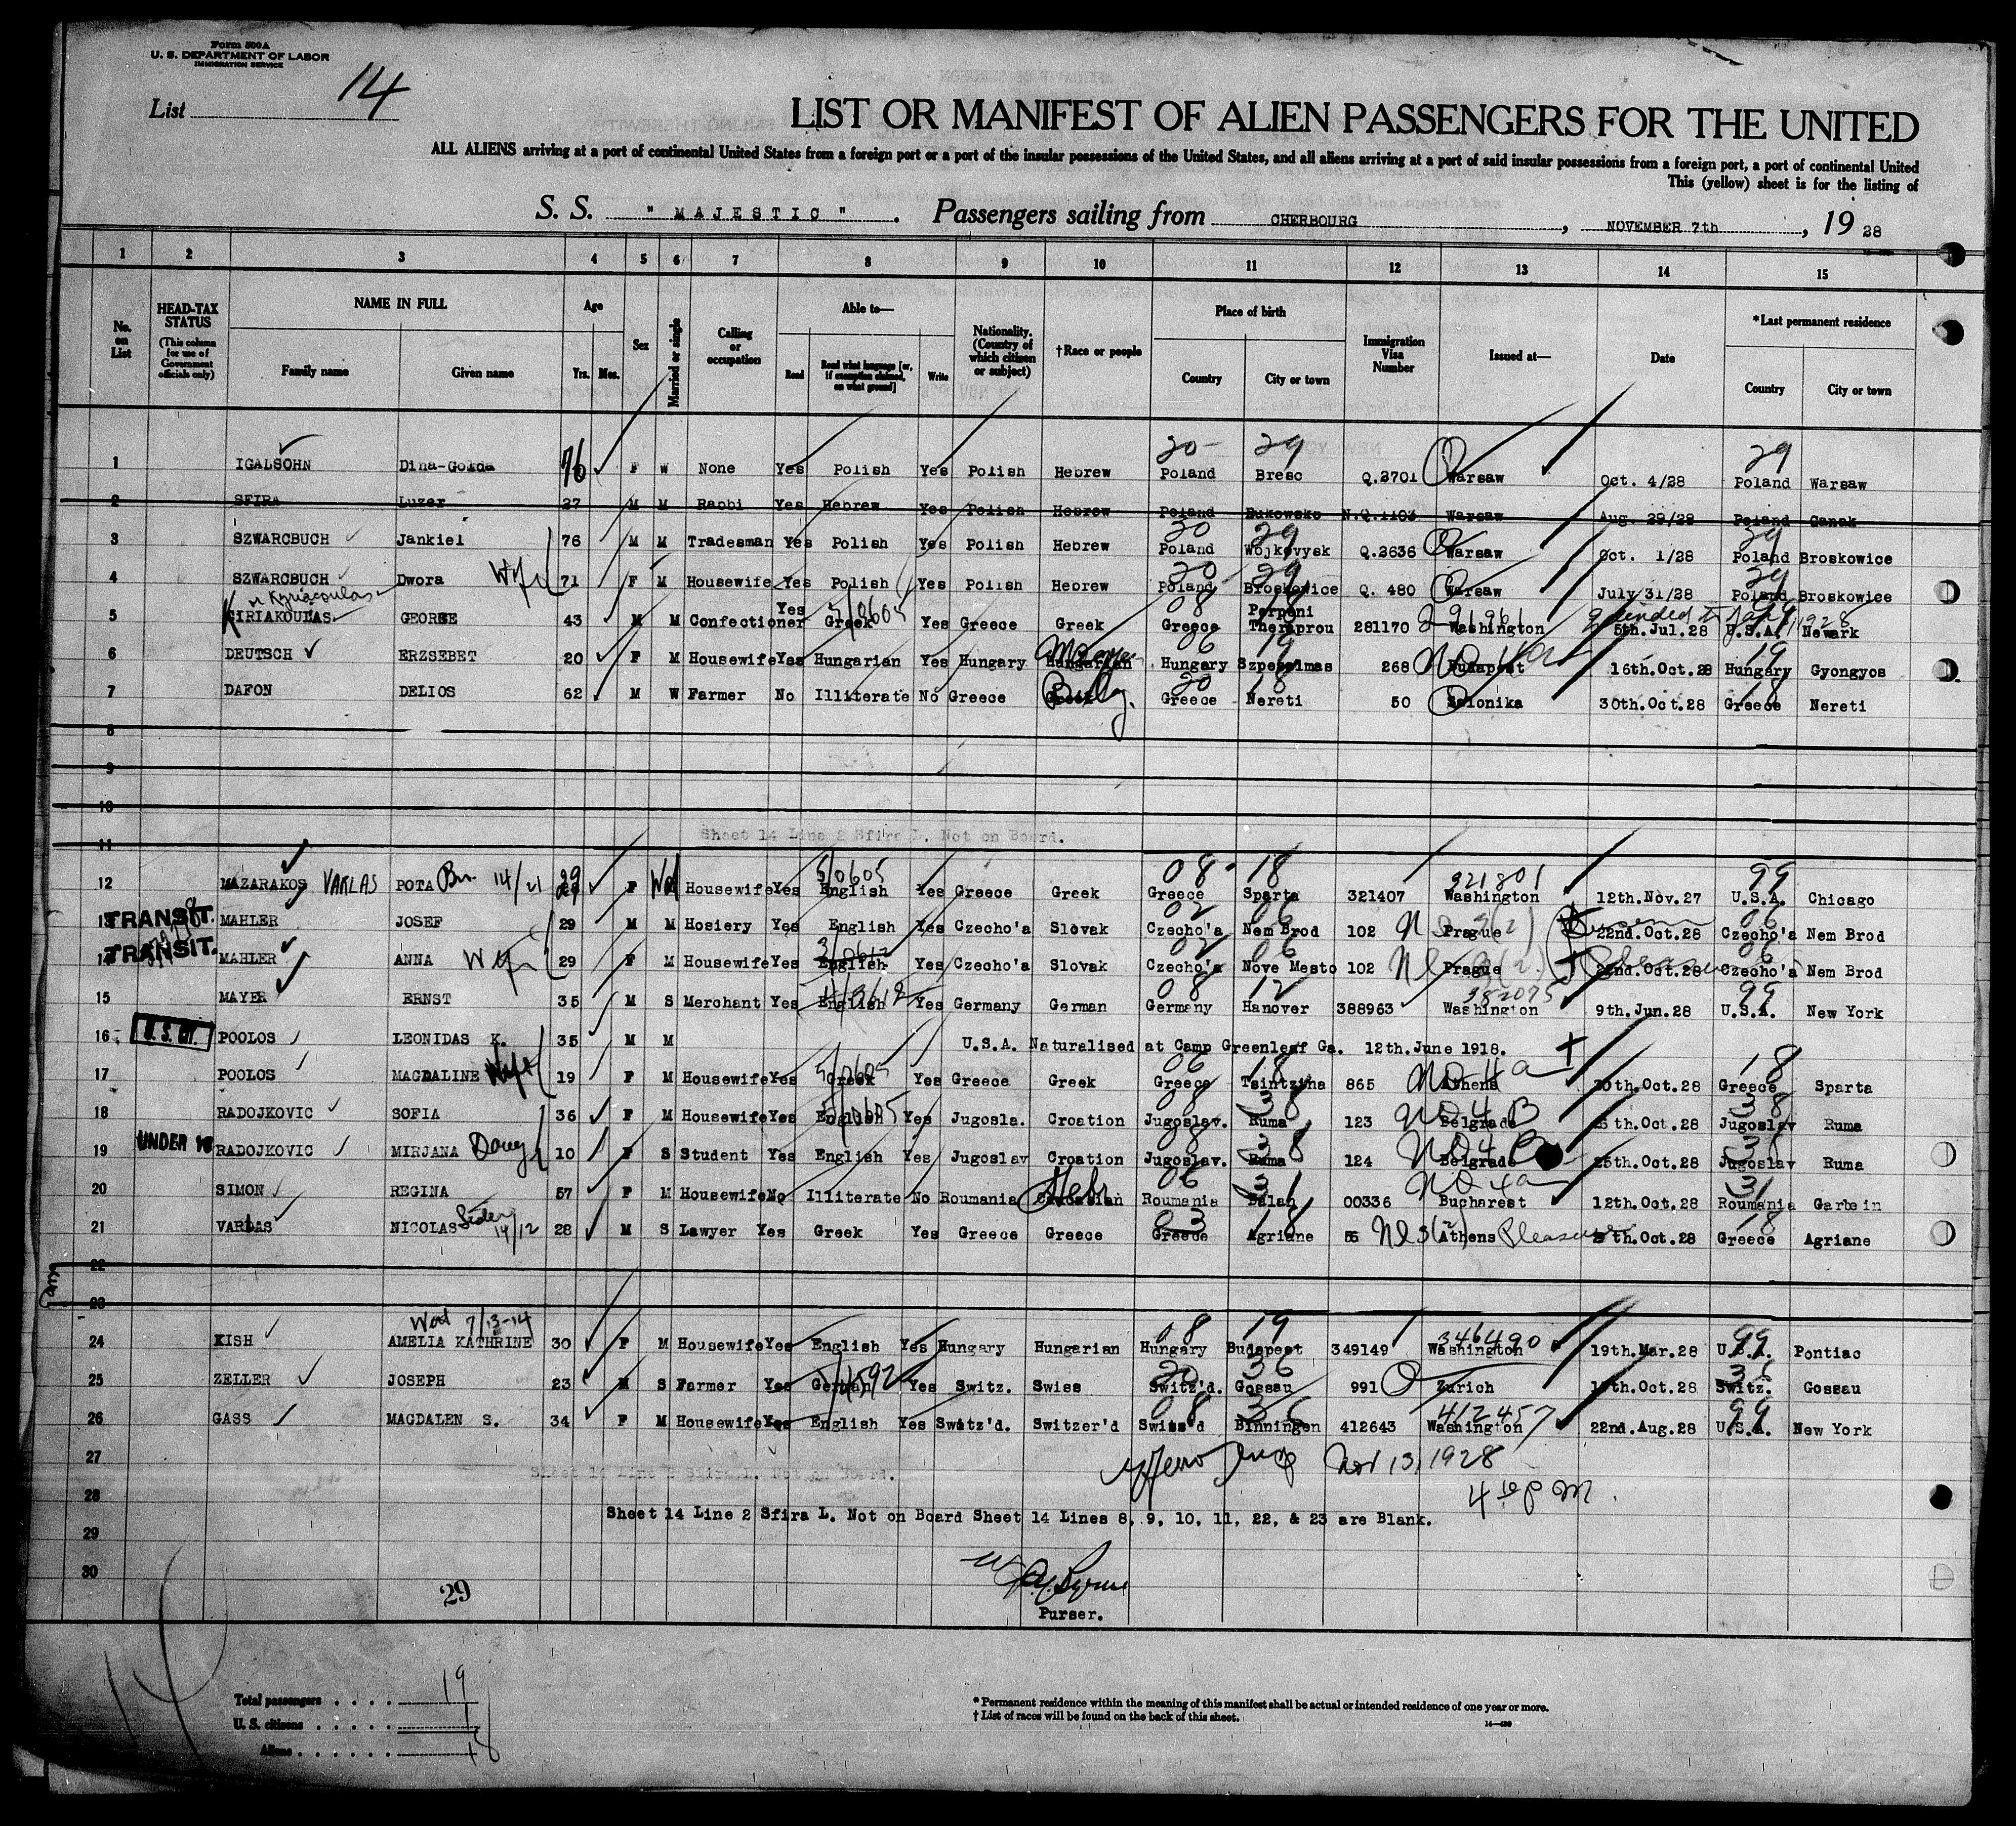 Form 500A
U. S. DEPARTMENT OF LABOR
IMMIGRATION SERVICE
List 14
LIST OR MANIFEST OF ALIEN PASSENGERS FOR THE UNITED
ALL ALIENS arriving at a port of continental United States from a foreign port or a port of the insular possessions of the United States, and all aliens arriving at a port of said insular possessions from a foreign port, a port of continental United
This (yellow) sheet is for the listing of
S. S. "MAJESTIC". Passengers sailing from CHERBOURG, NOVEMBER 7th, 19 28
1 2 3 4 5 6 7 8 9 10 11 12 13 14 15
No. on List
HEAD-TAX STATUS (This column for use of Government officials only)
NAME IN FULL Family name Given name
Age Yrs. Mos.
Sex
Married or single
Calling or occupation
Able to— Read Read what language [or, if exemption claimed, on what ground] Write
Nationality. (Country of which citizen or subject)
†Race or people
Place of birth Country City or town
Immigration Visa Number
Issued at—
Date
*Last permanent residence Country City or town
20 29 29
1 IGALSOHN Dina-Golda 76 F W None Yes Polish Yes Polish Hebrew Poland Bresc Q.2701 Warsaw Oct. 4/28 Poland Warsaw
2 SFIRA Luzer 27 M M Rabbi Yes Hebrew Yes Polish Hebrew Poland Bukowsko N.Q.1103 Warsaw Aug. 29/28 Poland Sanok
3 SZWARCBUCH Jankiel 76 M M Tradesman Yes Polish Yes Polish Hebrew Poland Wojkovysk Q.2636 Warsaw Oct. 1/28 Poland Broskowice
4 SZWARCBUCH Dwora Wife 71 F M Housewife Yes Polish Yes Polish Hebrew Poland Broskowice Q. 480 Warsaw July/31/28 Poland Broskowice
or Kyriacoulas
5 KIRIAKOULAS GEORGE 43 M M Confectioner Yes Greek Yes Greece Greek Greece Perponi Thesprou 281170 Washington 5th.Jul.28 U.S.A. Newark
6 DEUTSCH ERZSEBET 20 F M Housewife Yes Hungarian Yes Hungary Hungarian Hungary Szpesolmas 268 Budapest 16th.Oct.28 Hungary Gyongyos
7 DAFON DELIOS 62 M W Farmer No Illiterate No Greece Greek Greece Nereti 50 Salonika 30th.Oct.28 Greece Nereti
8
9
10
Sheet 14 Line 2 Sfira L. Not on Board.
11
12 MAZARAKOS VARLAS POTA 14/21 29 F Wd Housewife Yes English Yes Greece Greek Greece Sparta 321407 Washington 12th.Nov.27 U.S.A. Chicago
TRANSIT. 13 MAHLER JOSEF 29 M M Hosiery Yes English Yes Czecho'a Slovak Czecho'a Nem Brod 102 Prague 22nd.Oct.28 Czecho'a Nem Brod
TRANSIT. 14 MAHLER ANNA Wife 29 F M Housewife Yes English Yes Czecho'a Slovak Czecho'a Nove Mesto 102 Prague 22nd.Oct.28 Czecho'a Nem Brod
15 MAYER ERNST 35 M S Merchant Yes English Yes Germany German Germany Hanover 388963 Washington 9th.Jun.28 U.S.A. New York
16 U.S. CIT. POOLOS LEONIDAS K. 35 M M U.S.A. Naturalised at Camp Greenleaf Ga. 12th.June 1918.
17 POOLOS MAGDALINE Wife 19 F M Housewife Yes Greek Yes Greece Greek Greece Tsintzina 865 Athens 30th.Oct.28 Greece Sparta
18 RADOJKOVIC SOFIA 36 F M Housewife Yes English Yes Jugosla. Croation Jugoslav. Ruma 123 Belgrade 25th.Oct.28 Jugoslav Ruma
UNDER 16 19 RADOJKOVIC MIRJANA Daug 10 F S Student Yes English Yes Jugoslav Croation Jugoslav. Ruma 124 Belgrade 25th.Oct.28 Jugoslav Ruma
20 SIMON REGINA 57 F M Housewife No Illiterate No Roumania Hebr Roumania Balan 00336 Bucharest 12th.Oct.28 Roumania Garbein
21 VARLAS NICOLAS 14/12 28 M S Lawyer Yes Greek Yes Greece Greece Greece Agriane 55 Athens Pleasure th.Oct.28 Greece Agriane
22
23
24 KISH AMELIA KATHRINE 30 F M Housewife Yes English Yes Hungary Hungarian Hungary Budapest 349149 346490 Washington 19th.Mar.28 U.S.A. Pontiac
25 ZELLER JOSEPH 23 M S Farmer Yes German Yes Switz. Swiss Switz'd. Gossau 991 Zurich 15th.Oct.28 Switz. Gossau
26 GASS MAGDALEN S. 34 F M Housewife Yes English Yes Switz'd. Switzer'd Swiss'd Binningen 412643 412457 Washington 22nd.Aug.28 U.S.A. New York
27 Nov 13, 1928
28 4 PM.
Sheet 14 Line 2 Sfira L. Not on Board Sheet 14 Lines 8, 9, 10, 11, 22, & 23 are Blank.
29
30
29
Purser.
Total passengers 19
U. S. citizens 1
Aliens 18
* Permanent residence within the meaning of this manifest shall be actual or intended residence of one year or more.
† List of races will be found on the back of this sheet.